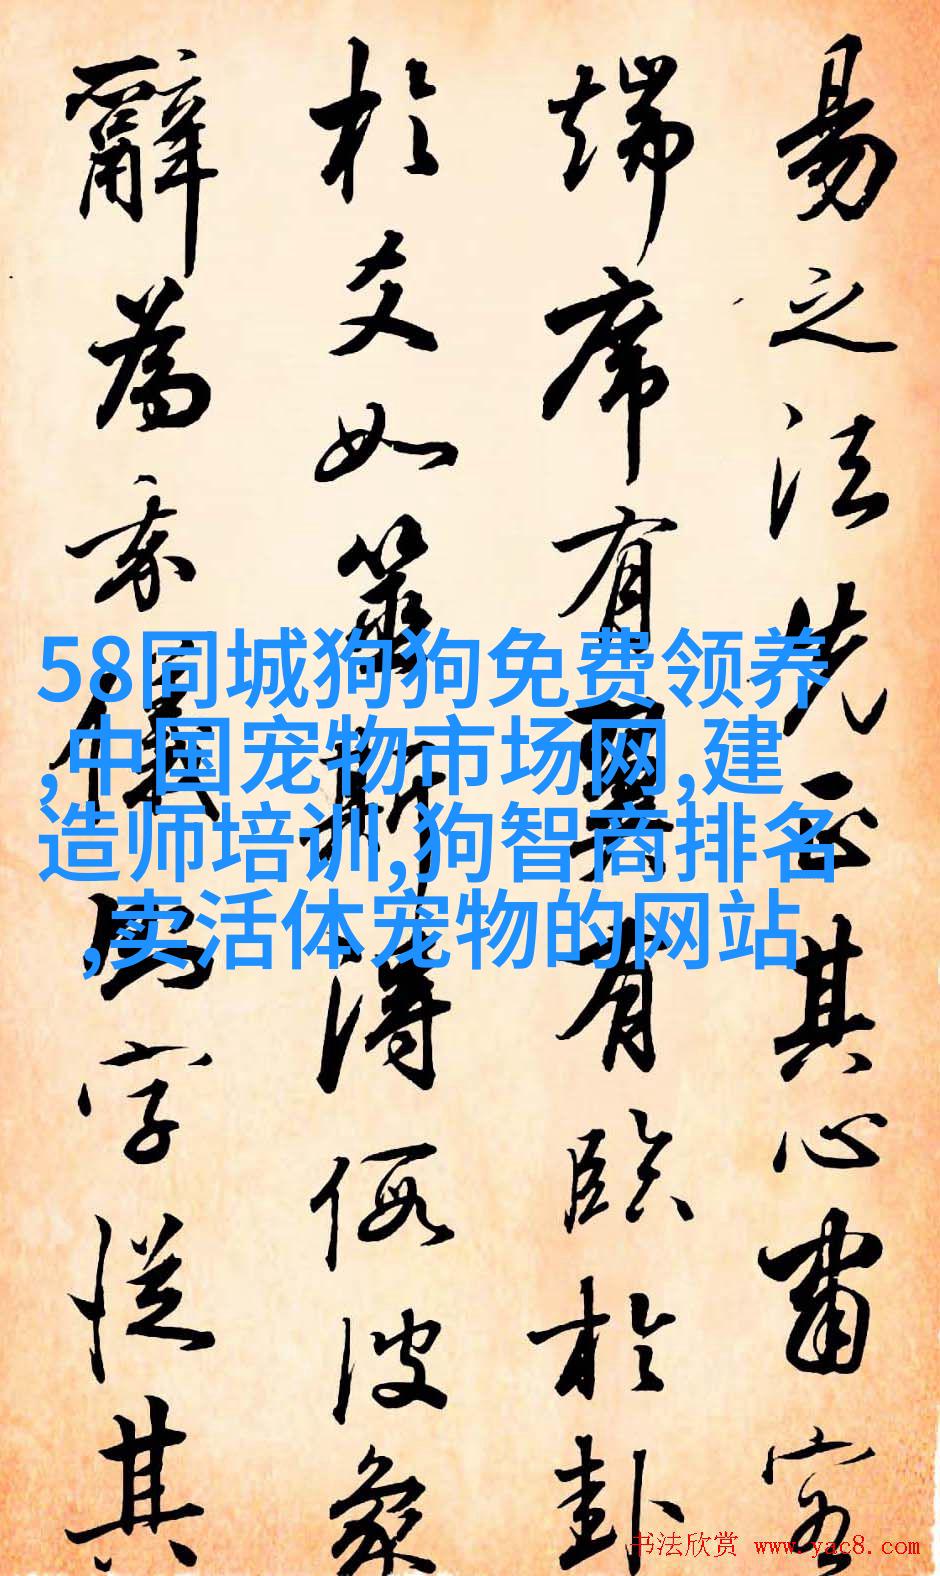 易之法先正其心肅容
端席有翼有臨於卦
於爻如筮斯得假彼象
辭為我儀字從其
58同城狗狗免费领养
,中国宠物市场网,建
造师培训,狗智商排名
,卖活体宠物的网站
书法欣赏 www.yac8.com